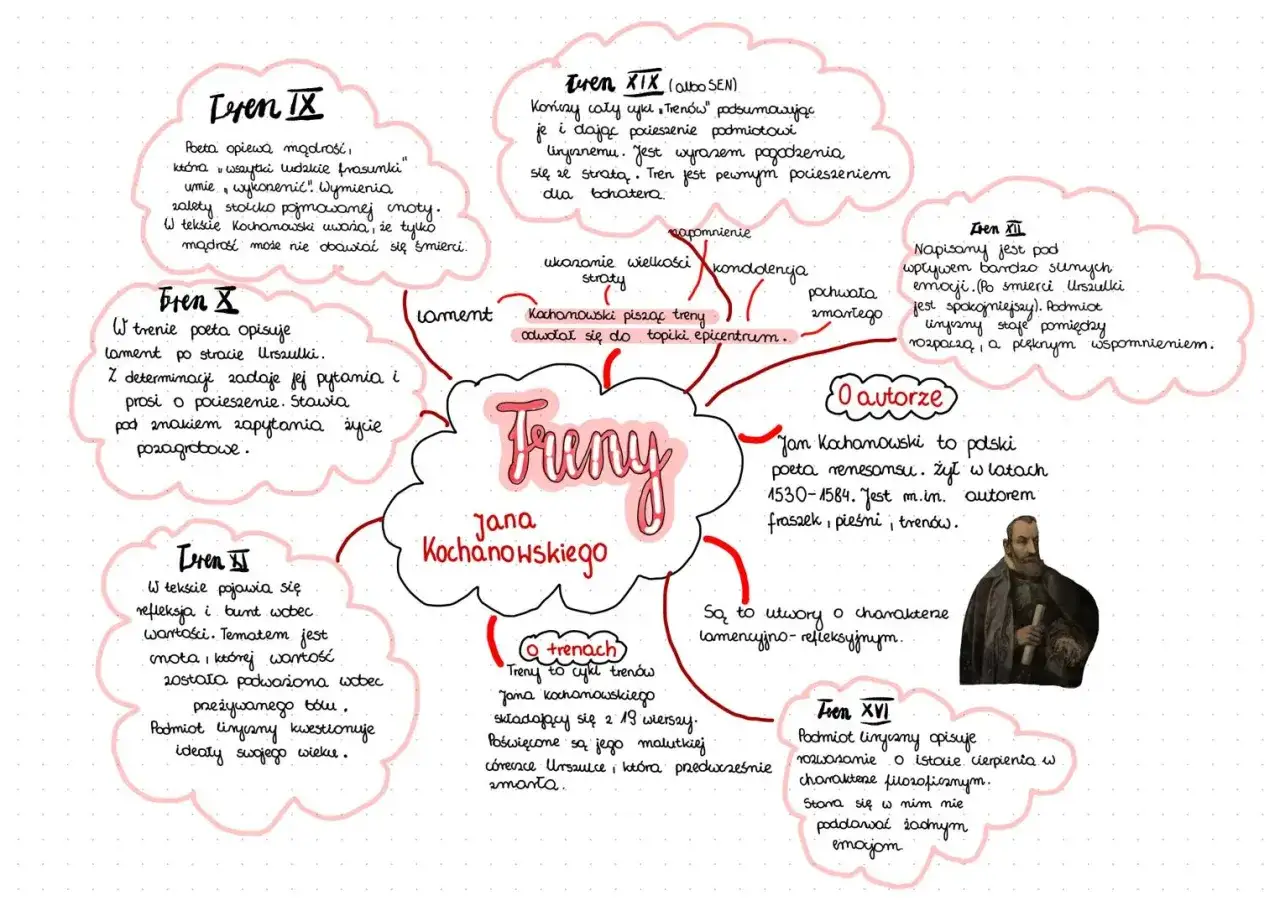 Tren IX
Poeta opiewa mądrość,
która „wszytki ludzkie frasunki"
umie „wykorzenić". Wymienia
zalety stoicko pojmowanej cnoty.
W tekście Kochanowski uważa, że tylko
mądrość może nie obawiać się śmierci.
Tren XIX (albo SEN)
Kończy cały cykl „Trenów" podsumowując
je i dając pocieszenie podmiotowi
lirycznemu. Jest wyrazem pogodzenia
się ze stratą. Tren jest pewnym pocieszeniem
dla bohatera.
Tren XII
Napisany jest pod
wpływem bardzo silnych
emocji. (Po śmierci Urszulki
jest spokojniejszy). Podmiot
liryczny staje pomiędzy
rozpaczą, a pięknym wspomnieniem.
napomnienie
ukazanie wielkości
straty
kondolencja
pochwała
zmarłego
lament
Kochanowski pisząc treny
odwołał się do topiki epicentrum.
Tren X
W trenie poeta opisuje
lament po stracie Urszulki.
Z determinacji zadaje jej pytania i
prosi o pocieszenie. Stawia
pod znakiem zapytania życie
pozagrobowe.
Treny
Jana
Kochanowskiego
O autorze
Jan Kochanowski to polski
poeta renesansu. Żył w latach
1530-1584. Jest m.in. autorem
fraszek, pieśni, trenów.
Tren XI
W tekście pojawia się
refleksja i bunt wobec
wartości. Tematem jest
cnota, której wartość
została podważona wobec
przeżywanego bólu.
Podmiot liryczny kwestionuje
ideały swojego wieku.
Są to utwory o charakterze
lamencyjno-refleksyjnym.
o trenach
Treny to cykl trenów
Jana Kochanowskiego
składający się z 19 wierszy.
Poświęcone są jego malutkiej
córeczce Urszulce, która przedwcześnie
zmarła.
Tren XVI
Podmiot liryczny opisuje
rozważanie o istocie cierpienia w
charakterze filozoficznym.
Stara się w nim nie
poddawać żadnym
emocjom.